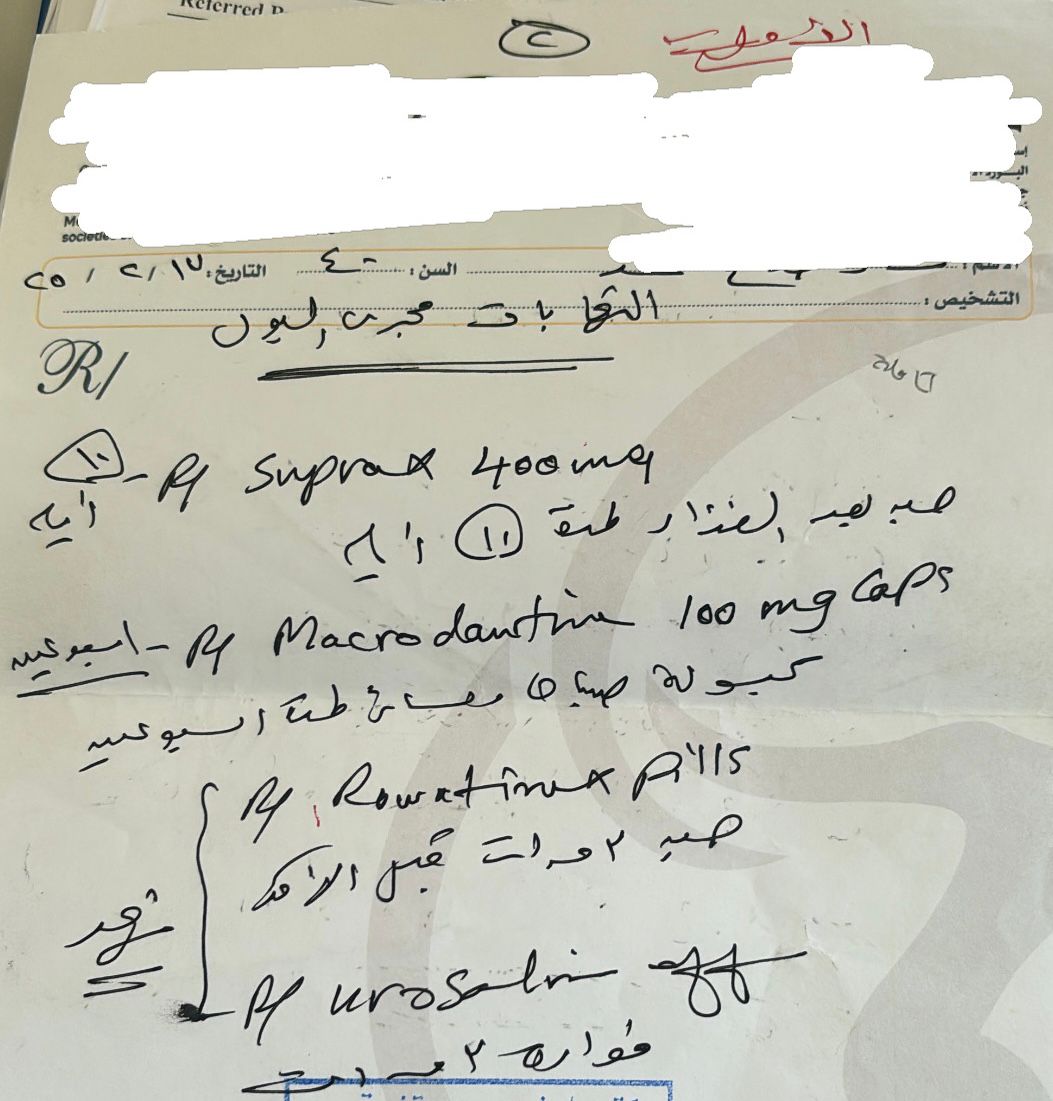 Referred
٢
الاسم :
السن : ٤٠
التاريخ : ١٧ / ٢ / ٢٥
التشخيص : التهابات مجرى البول
R/
١٠ أيام - R/ Suprax 400 mg
حبه بعد الغذاء لمدة ١٠ أيام
اسبوعين - R/ Macrodantine 100 mg Caps
كبسولة صباحا مساء لمدة اسبوعين
R/ Rowatinex pills
حبه ٣ مرات قبل الأكل
شهر
R/ urosolvin eff
فوارة ٣ مرات